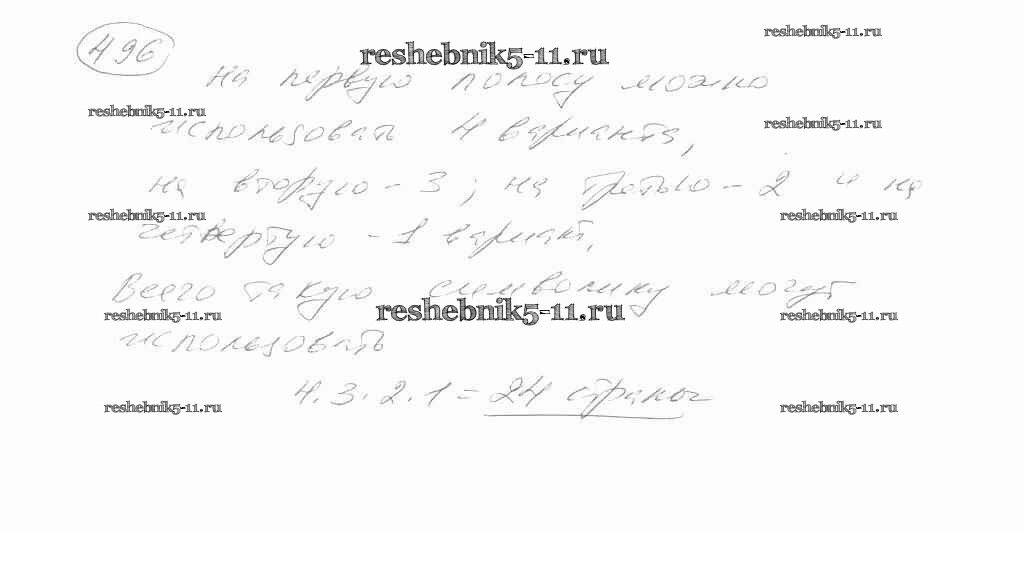 reshebnik5-11.ru
496
reshebnik5-11.ru
На первую полосу можно
reshebnik5-11.ru
reshebnik5-11.ru
использовать 4 варианта,
на вторую - 3; на третью - 2 и на
reshebnik5-11.ru
reshebnik5-11.ru
четвертую - 1 вариант.
Всего такую символику могут
reshebnik5-11.ru
reshebnik5-11.ru
reshebnik5-11.ru
использовать
4·3·2·1 = 24 страны
reshebnik5-11.ru
reshebnik5-11.ru